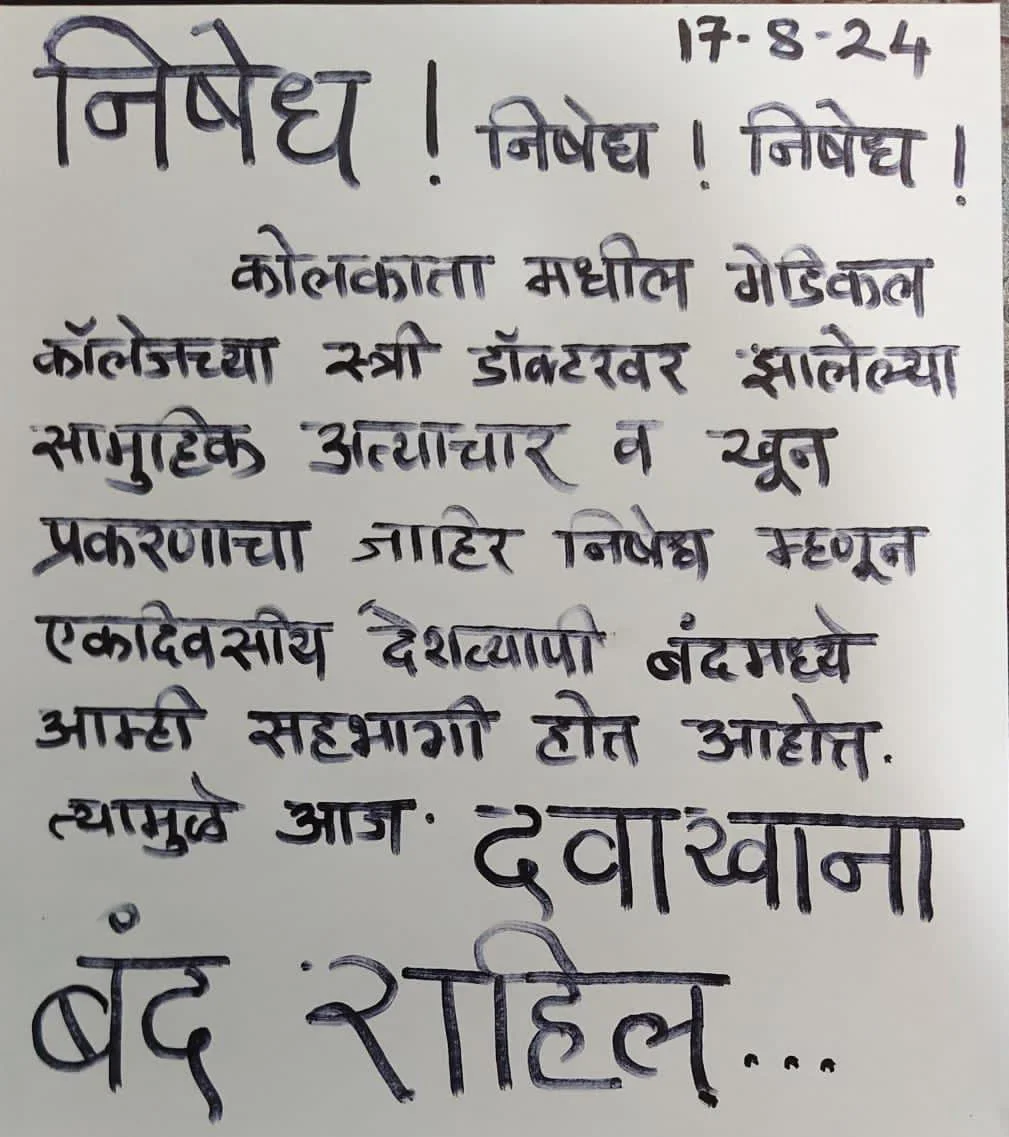 17-8-24
निषेध ! निषेध ! निषेध !
कोलकाता मधील मेडिकल
कॉलेजच्या स्त्री डॉक्टरवर झालेल्या
सामुहिक अत्याचार व खून
प्रकरणाचा जाहिर निषेध म्हणून
एकदिवसीय देशव्यापी बंदमध्ये
आम्ही सहभागी होत आहोत.
त्यामुळे आज. दवाखाना
बंद राहिल...